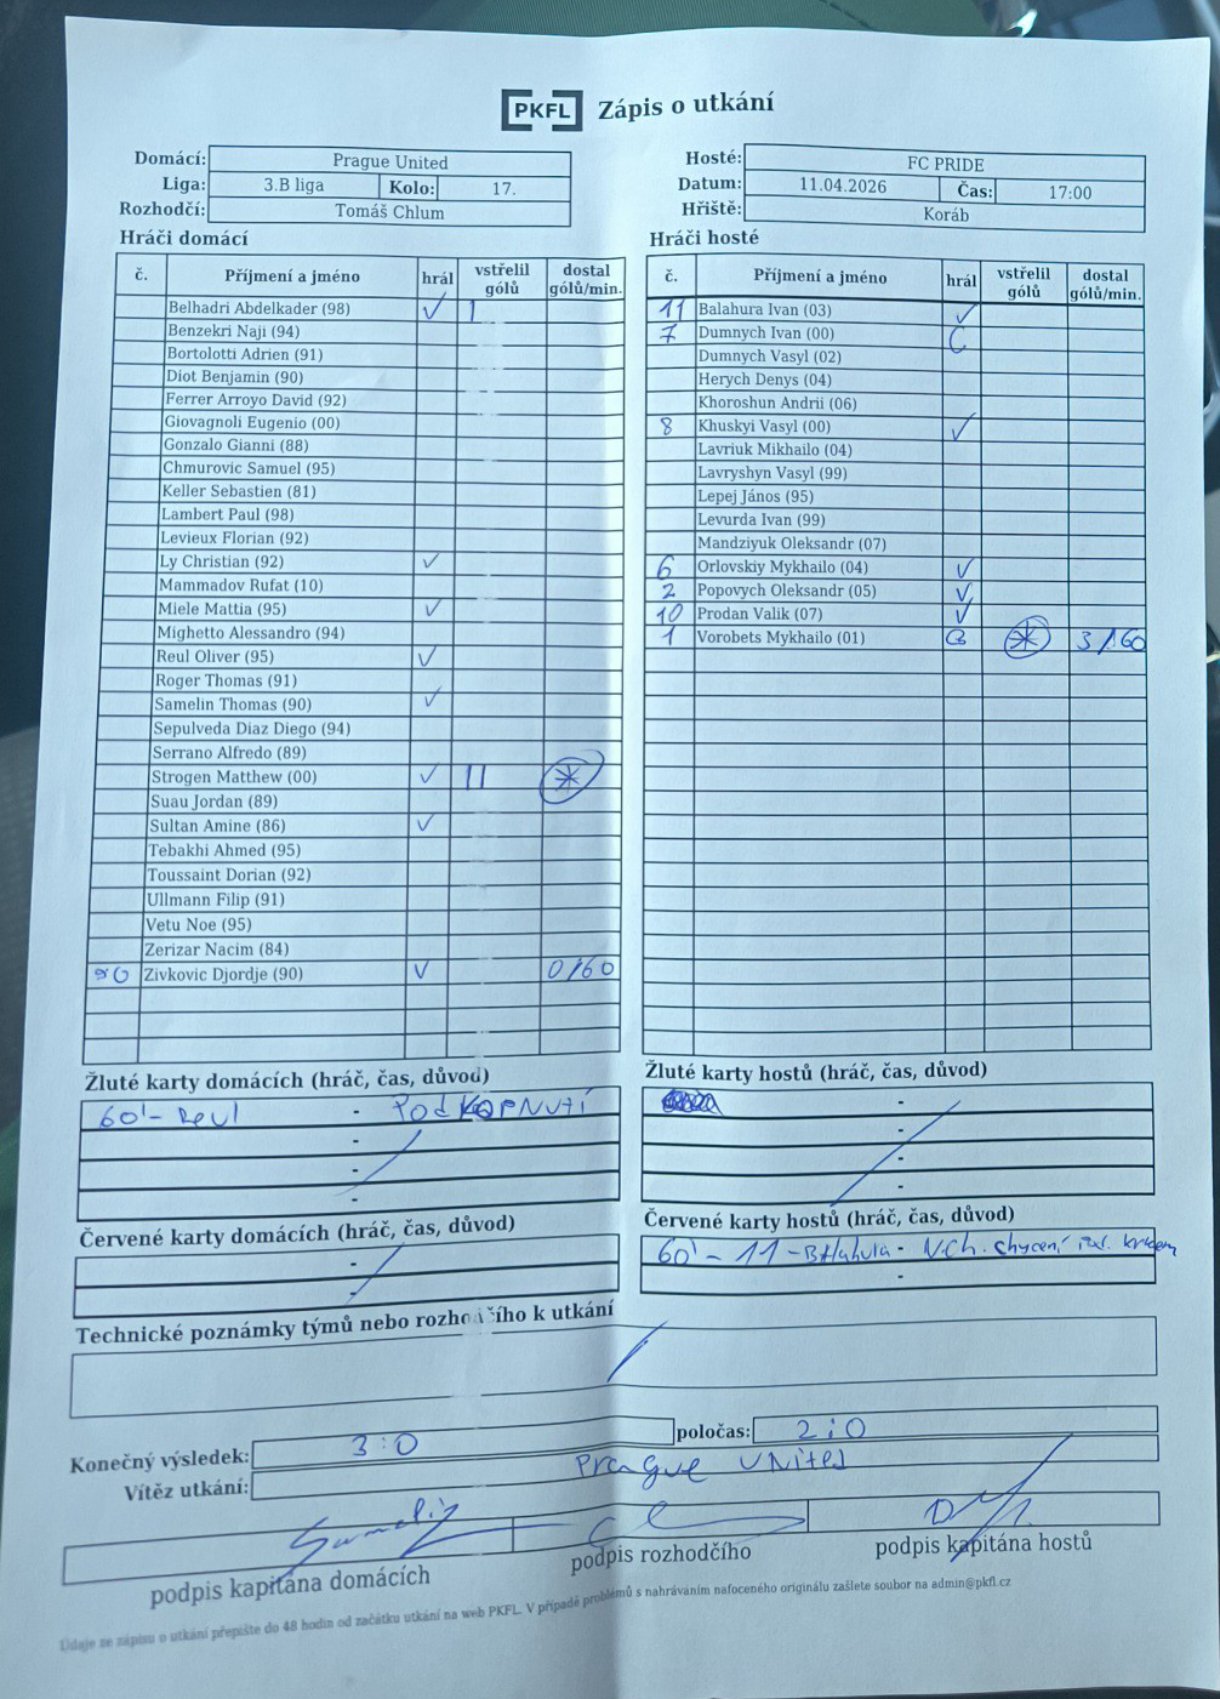 PKFL Zápis o utkání
Domácí: Prague United
Liga: 3.B liga Kolo: 17.
Rozhodčí: Tomáš Chlum
Hosté: FC PRIDE
Datum: 11.04.2026 Čas: 17:00
Hřiště: Koráb
Hráči domácí
č. Příjmení a jméno hrál vstřelil gólů dostal gólů/min.
Belhadri Abdelkader (98) ✓ 1
Benzekri Naji (94)
Bortolotti Adrien (91)
Diot Benjamin (90)
Ferrer Arroyo David (92)
Giovagnoli Eugenio (00)
Gonzalo Gianni (88)
Chmurovic Samuel (95)
Keller Sebastien (81)
Lambert Paul (98)
Levieux Florian (92)
Ly Christian (92) ✓
Mammadov Rufat (10)
Miele Mattia (95) ✓
Mighetto Alessandro (94)
Reul Oliver (95) ✓
Roger Thomas (91)
Samelin Thomas (90) ✓
Sepulveda Diaz Diego (94)
Serrano Alfredo (89)
Strogen Matthew (00) ✓ II *
Suau Jordan (89)
Sultan Amine (86) ✓
Tebakhi Ahmed (95)
Toussaint Dorian (92)
Ullmann Filip (91)
Vetu Noe (95)
Zerizar Nacim (84)
Zivkovic Djordje (90) ✓ 0/60
Hráči hosté
č. Příjmení a jméno hrál vstřelil gólů dostal gólů/min.
11 Balahura Ivan (03) ✓
7 Dumnych Ivan (00) C
Dumnych Vasyl (02)
Herych Denys (04)
Khoroshun Andrii (06)
8 Khuskyi Vasyl (00) ✓
Lavriuk Mikhailo (04)
Lavryshyn Vasyl (99)
Lepej János (95)
Levurda Ivan (99)
Mandziyuk Oleksandr (07)
6 Orlovskiy Mykhailo (04) ✓
2 Popovych Oleksandr (05) ✓
10 Prodan Valik (07) ✓
1 Vorobets Mykhailo (01) * 3/60
Žluté karty domácích (hráč, čas, důvod)
60' - Reul - PODKOPNUTÍ
-
-
-
Žluté karty hostů (hráč, čas, důvod)
-
-
-
-
Červené karty domácích (hráč, čas, důvod)
-
-
Červené karty hostů (hráč, čas, důvod)
60' - 11 - BAlahura - N.Ch. chycení
-
Technické poznámky týmů nebo rozhodčího k utkání
Konečný výsledek: 3:0 poločas: 2:0
Vítěz utkání: Prague UNITED
podpis kapitána domácích podpis rozhodčího podpis kapitána hostů
Údaje ze zápisu o utkání přepište do 48 hodin od začátku utkání na web PKFL. V případě problémů s nahráváním nafoceného originálu zašlete soubor na admin@pkfl.cz